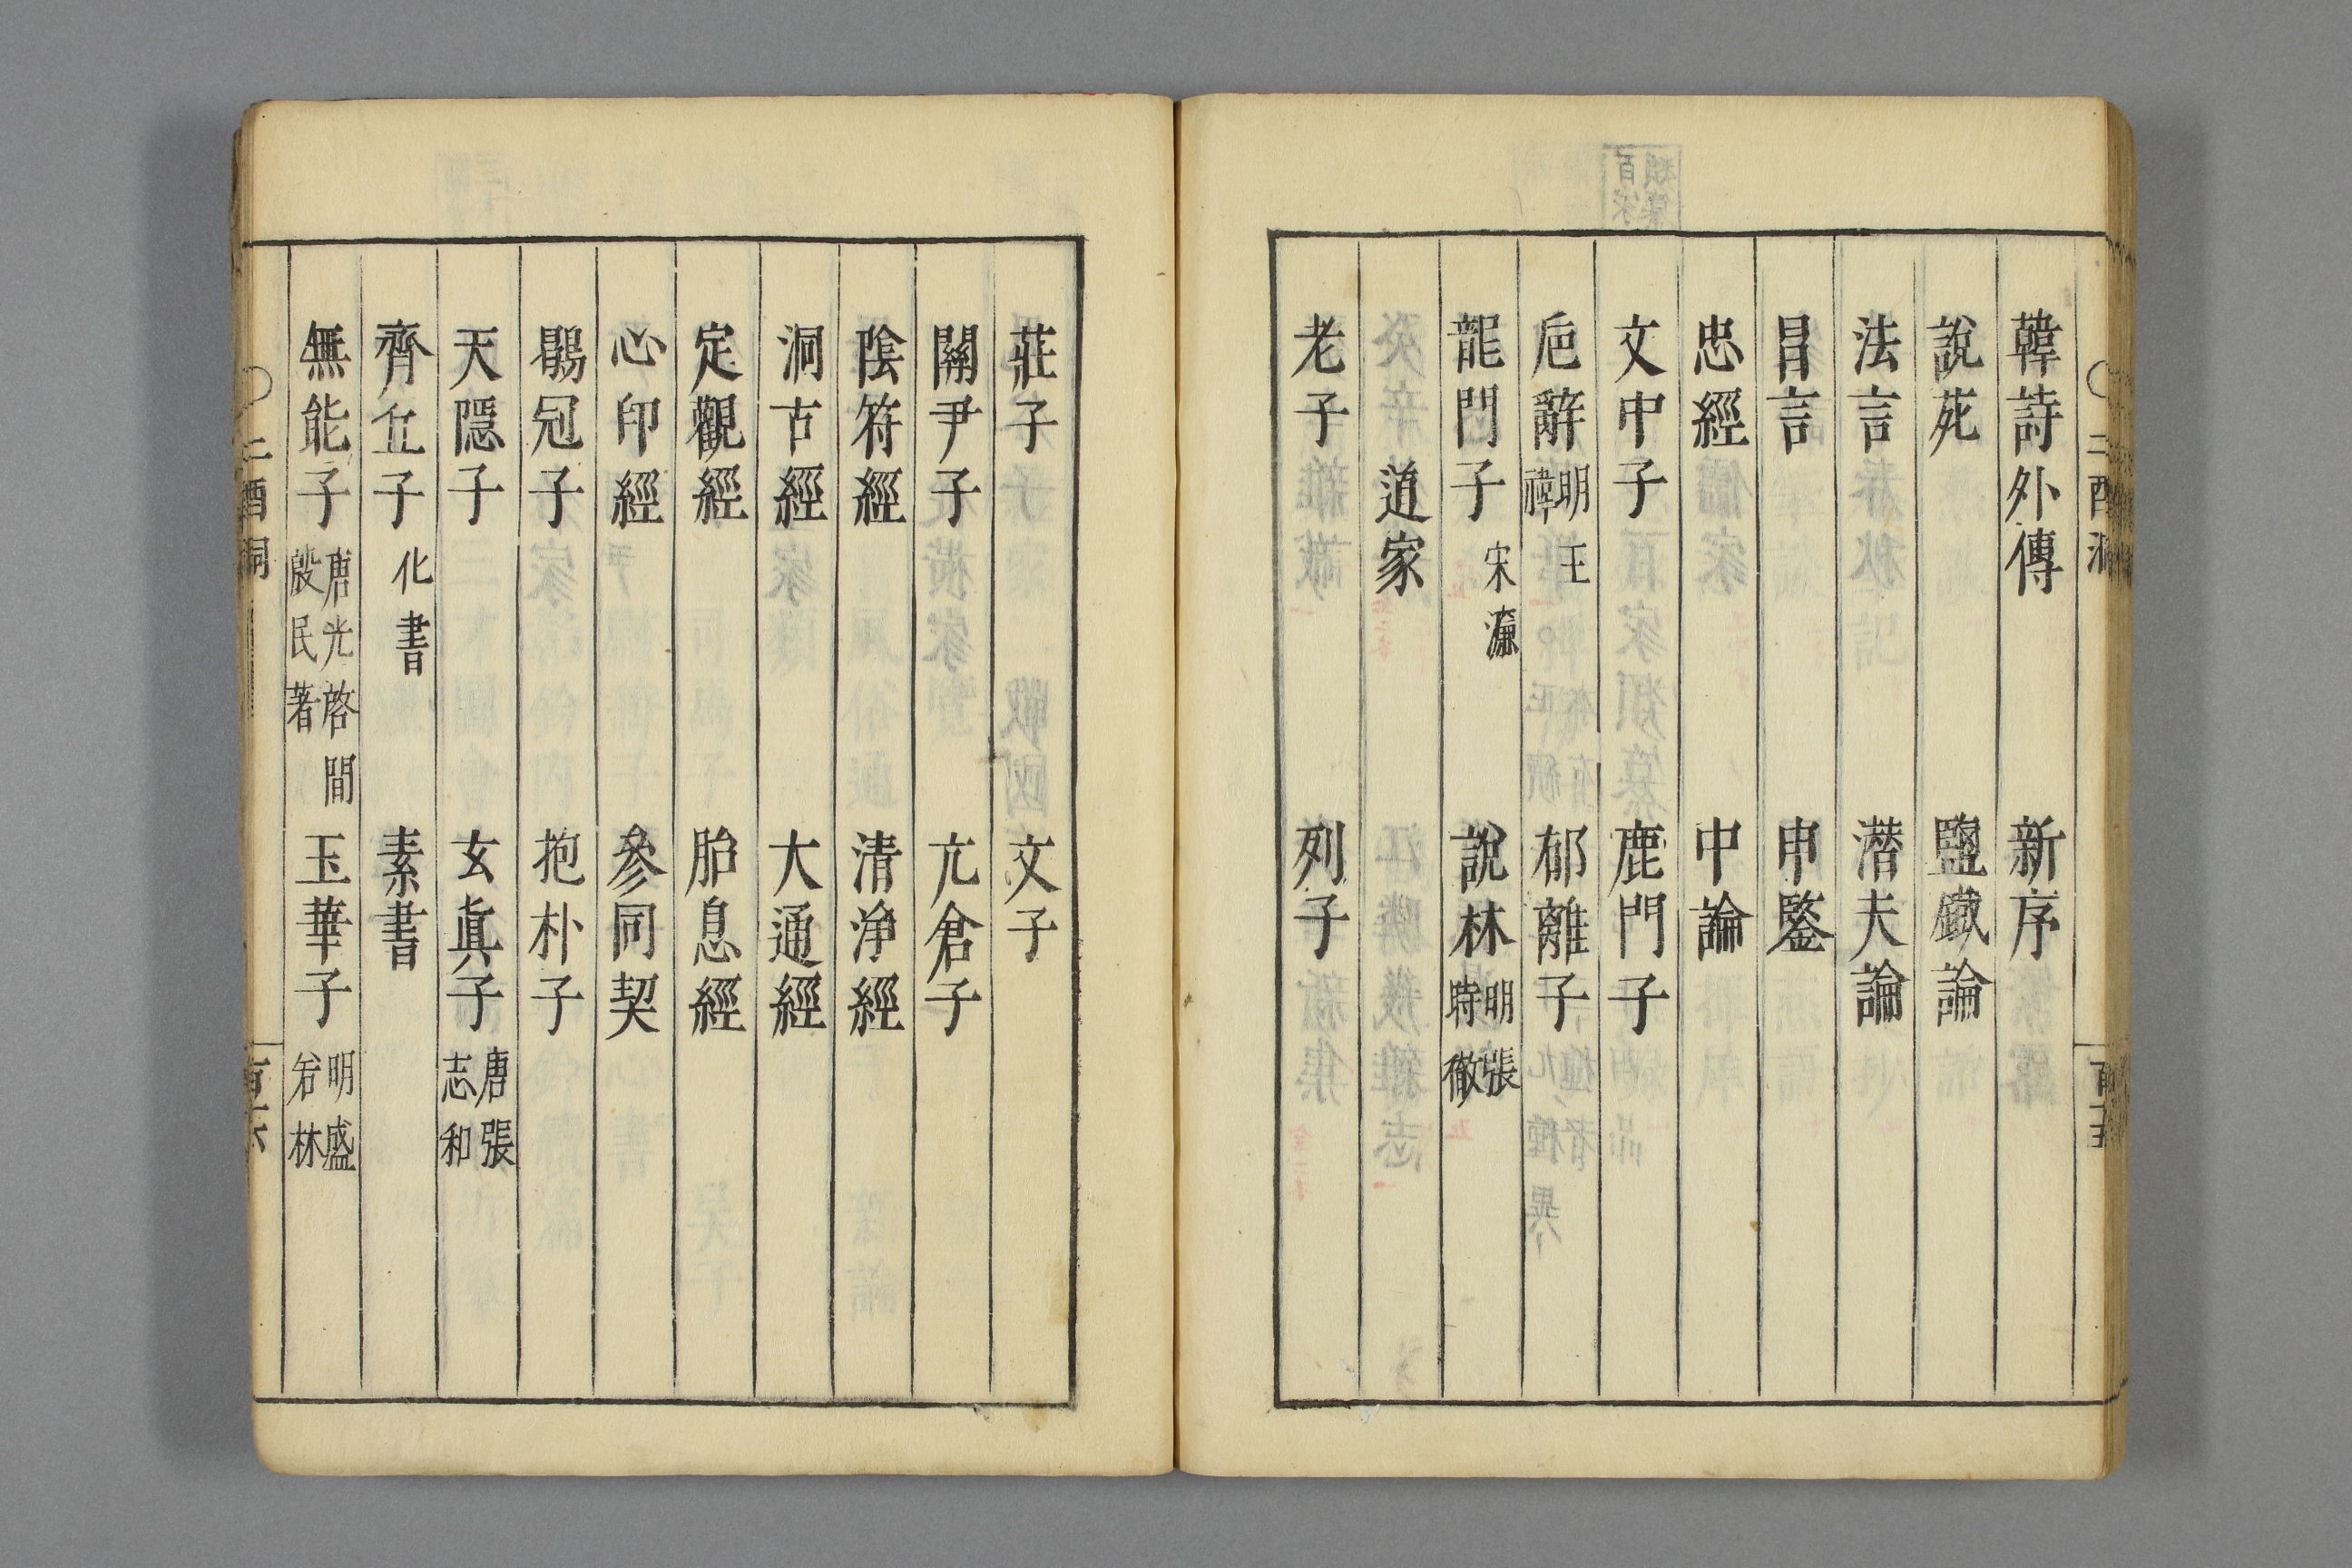 韓詩外傳 新序
說苑 鹽鐵論
法言 潛夫論
昌言 申鑒
忠經 中論
文中子 鹿門子
巵辭 明王禕 郁離子
龍門子 宋濂 說林 明張時徹
道家
老子 列子
莊子 文子
關尹子 亢倉子
陰符經 清淨經
洞古經 大通經
定觀經 胎息經
心印經 參同契
鶡冠子 抱朴子
天隱子 玄眞子 唐張志和
齊丘子 化書 素書
無能子 唐光啓間殷民著 玉華子 明盛若林
二酉洞